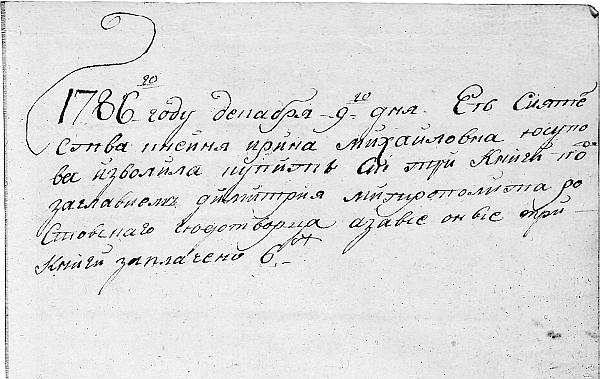 1786 го году декабря 9 го дня. Еѣ Сиятѣ
ства кнеиня ирина михаиловна юсупо
ва изволила купить сіи три книги по
заглавиемъ димитрия митрополита ро
стовскаго чюдотворца а завсе оные три
книги заплачено 6